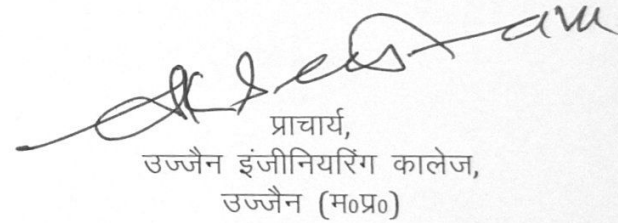 प्राचार्य,
उज्जैन इंजीनियरिंग कालेज,
उज्जैन (म०प्र०)